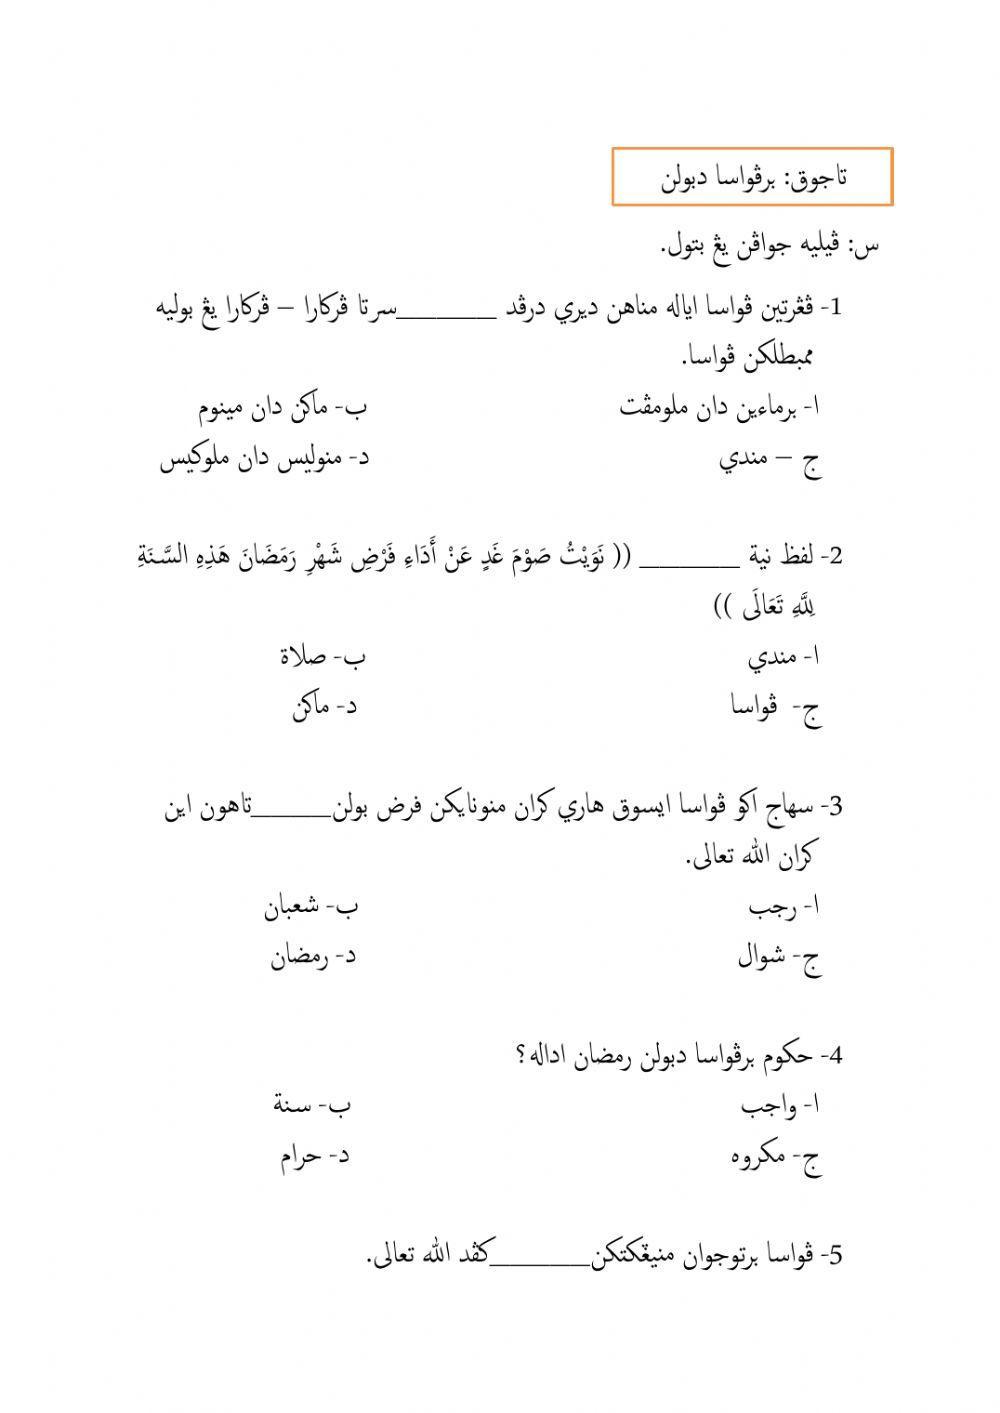 تاجوق: برڤواسا دبولن
س: ڤيليه جواڤن يڠ بتول.
1- ڤڠرتين ڤواسا اياله مناهن ديري درڤد __________سرتا ڤركارا – ڤركارا يڠ بوليه
ممبطلكن ڤواسا.
ا- برماءين دان ملومڤت ب- ماكن دان مينوم
ج – مندي د- منوليس دان ملوكيس
2- لفظ نية __________ (( نَوَيْتُ صَوْمَ غَدٍ عَنْ أَدَاءِ فَرْضِ شَهْرِ رَمَضَانَ هَذِهِ السَّنَةِ
لِلَّهِ تَعَالَى ))
ا- مندي ب- صلاة
ج- ڤواسا د- ماكن
3- سهاج اكو ڤواسا ايسوق هاري كران منونايكن فرض بولن________تاهون اين
كران الله تعالى.
ا- رجب ب- شعبان
ج- شوال د- رمضان
4- حكوم برڤواسا دبولن رمضان اداله؟
ا- واجب ب- سنة
ج- مكروه د- حرام
5- ڤواسا برتوجوان منيڠكتكن__________كڤد الله تعالى.